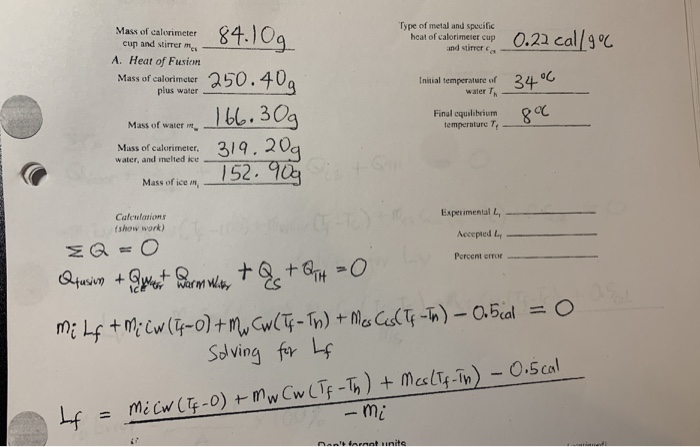 Mass of calorimeter cup and stirrer m_cs 84.10g
Type of metal and specific heat of calorimeter cup and stirrer c_cs 0.22 cal/g°C
A. Heat of Fusion
Mass of calorimeter plus water 250.40g
Initial temperature of water T_h 34°C
Mass of water m_w 166.30g
Final equilibrium temperature T_f 8°C
Mass of calorimeter, water, and melted ice 319.20g
Mass of ice m_i 152.90g
Calculations (show work)
Experimental L_f
Accepted L_f
Percent error
ΣQ = 0
Qfusion + Qwater ice + Qwarm water + Qcs + QTH = 0
mi Lf + mi Cw (Tf-0) + mw Cw (Tf-Th) + mcs Ccs (Tf-Th) - 0.5cal = 0
Solving for Lf
Lf = mi Cw (Tf-0) + mw Cw (Tf-Th) + mcs (Tf-Th) - 0.5cal
-mi
Don't forget units